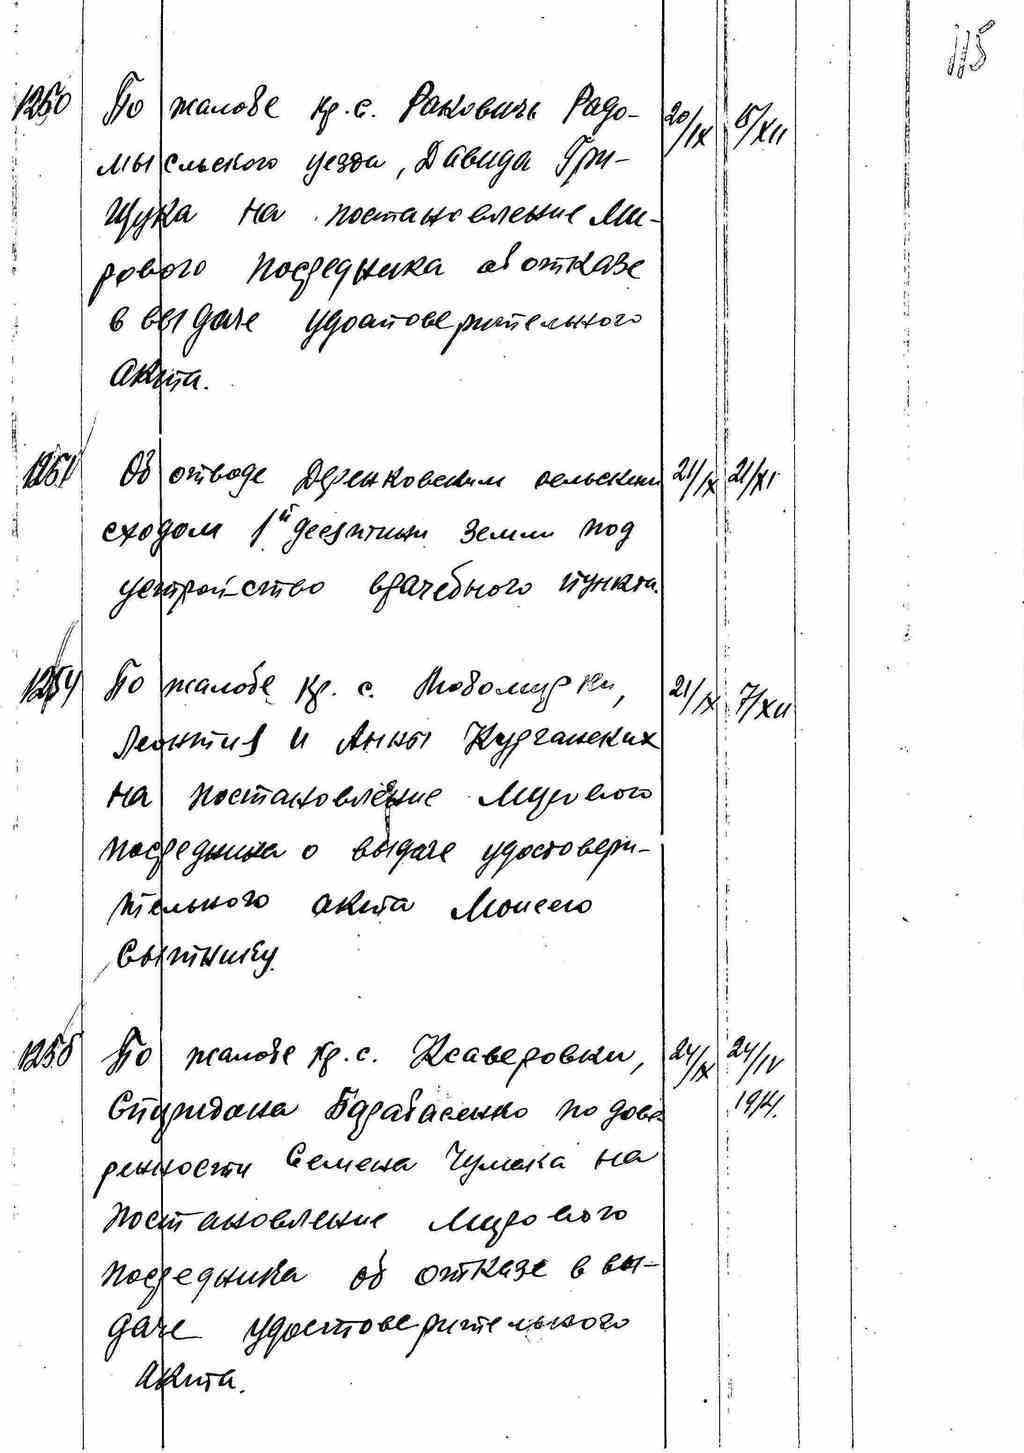 115
1250 По жалобе кр. с. Раковичь Радо- 20/IX 15/XII
мысльского уезда, Давида Гри-
щука на постановление Ми-
рового посредника об отказе
в выдаче удостоверительного
акта.
1251 Об отводе сельским 21/IX 21/XI
сходом 1й десятины земли под
устройство врачебного пункта.
1254 По жалобе кр. с. 21/IX 7/XII
Леонтия и Анны Курганских
на постановление Мирового
посредника о выдаче удостовери-
тельного акта Моисею
Сытнику.
По жалобе кр. с. Ксаверовки, 24/IX 24/IV
Спиридона Барабасенко по дове- 1914.
ренности Семена Чумака на
постановление Мирового
посредника об отказе в вы-
даче удостоверительного
акта.